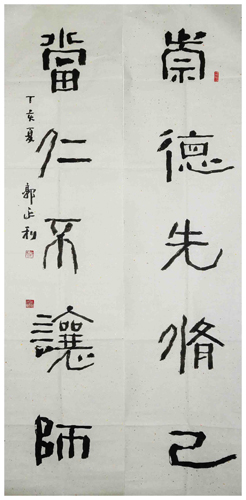 崇德先脩己
當仁不讓師
丁亥夏
郭正利